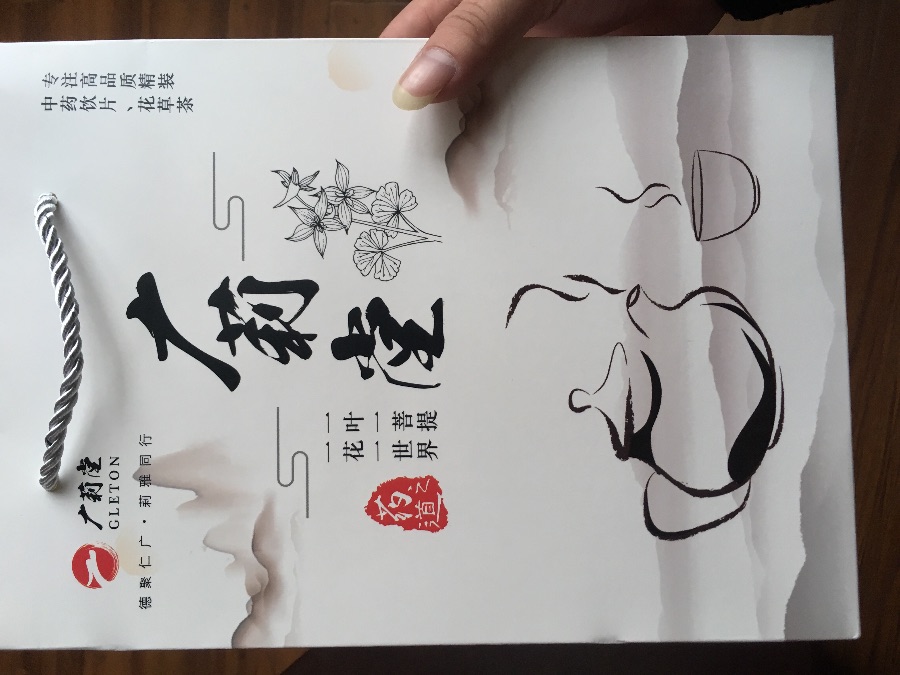 广莉堂
GLETON
德聚仁广·莉雅同行
专注高品质精装
中药饮片、花草茶
广莉堂
一叶一菩提
一花一世界
药之道